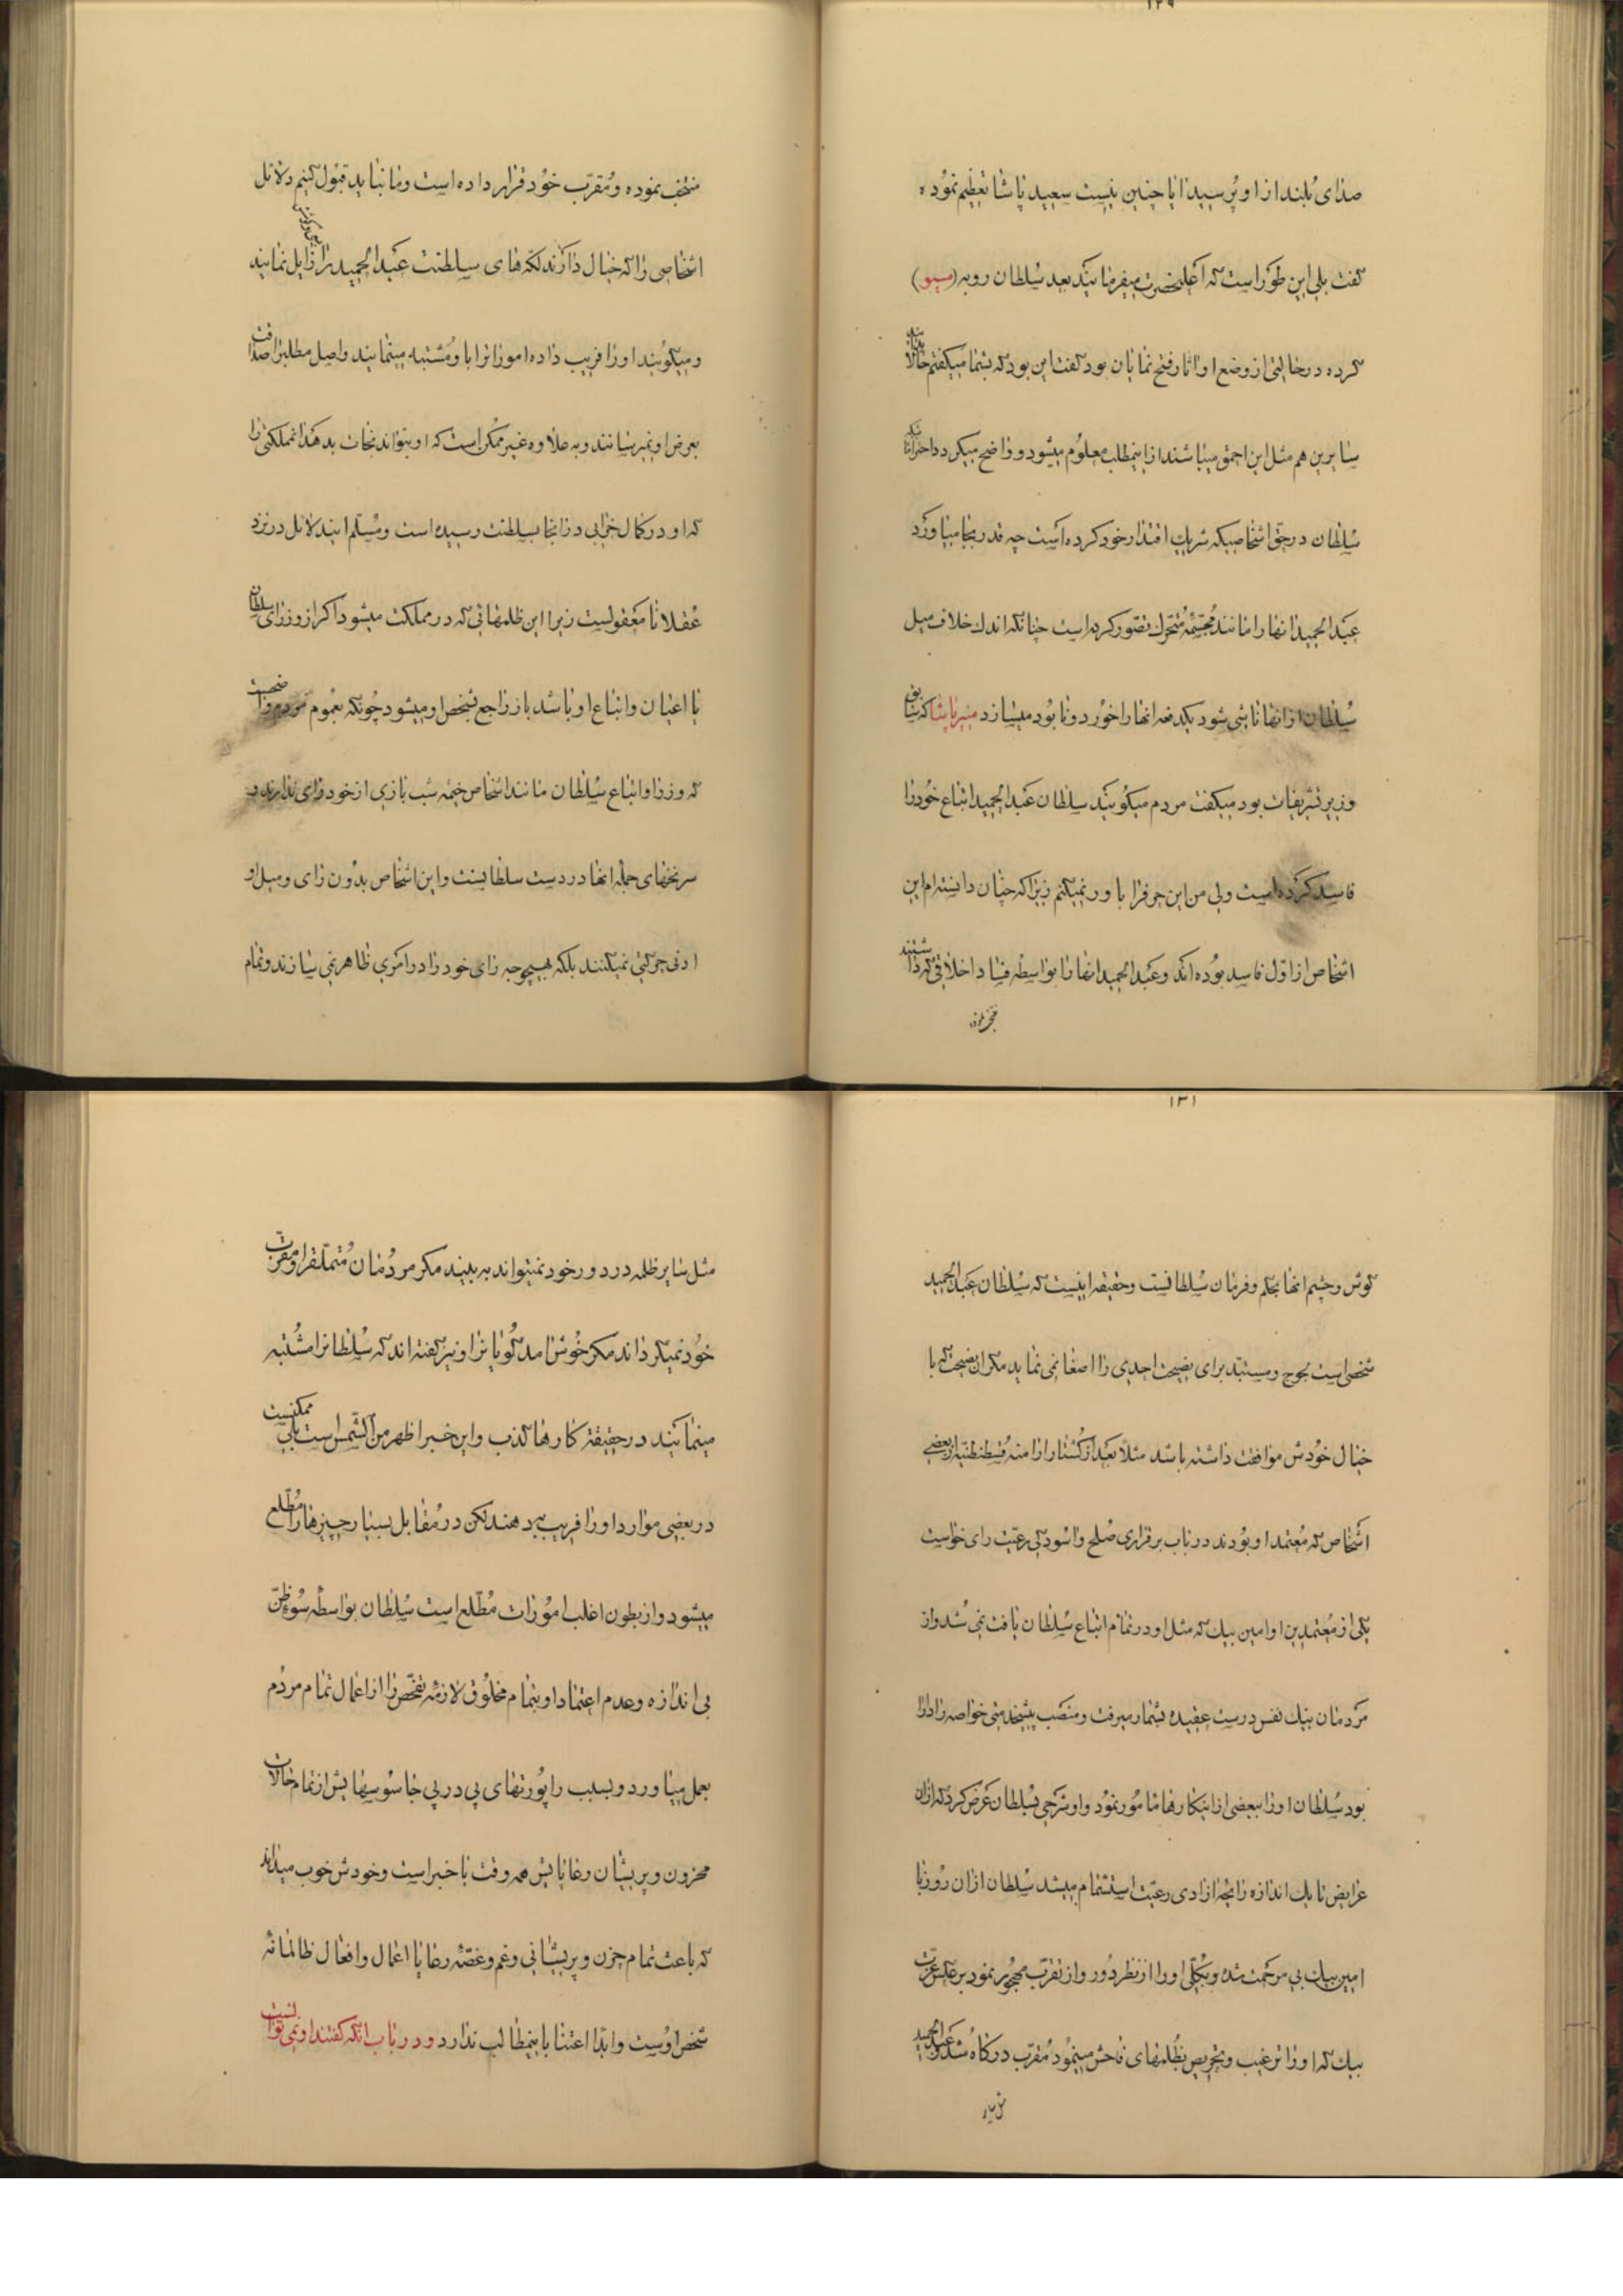 ۱۲۹
صدای بلند از او پرسید ایا چنین نیست سعید پاشا تعظیم نموده
گفت بلی این طور است که اعلیحضرت میفرمایند بعد سلطان رو به (مسیو)
کرده در حالتی از وضع او اثار فتح نمایان بود گفت این بود که بشما میگفتم حالا بدانید
سایرین هم مثل این احمق میباشند از اینمطلب معلوم میشود و واضح میگردد احتراماتیکه
سلطان در حق اشخاصیکه شریک اقتدار خود کرده است چه قدر بجا میاورد
عبدالحمید انها را مانند مجسمه متحرک تصور کرده است چنانکه اندک خلاف میل
سلطان از انها ناشی شود یکدفعه انها را خورد و نابود میسازد منیر پاشا که سابق
وزیر تشریفات بود میگفت مردم میگویند سلطان عبدالحمید اتباع خود را
فاسد کرده است ولی من این حرفرا باور نمیکنم زیرا که چنان دانسته‌ام این
اشخاص از اول فاسد بوده‌اند و عبدالحمید انها را بواسطه فساد اخلاقی که داشتند
منتخب نموده و مقرب خود قرار داده است و ما نباید قبول کنیم دلائل
اشخاصی را که خیال دارند لکه‌های سلطنت عبدالحمید را زایل نمایند
و میگویند او را فریب داده امورات را باو مشتبه مینمایند و اصل مطلبرا صداقت
بعرض او نمیرسانند و به علاوه غیر ممکن است که او بتواند نجات بدهد مملکتی را
که او در کمال خرابی در انجا بسلطنت رسیده است و مسلم ایندلائل در نزد
عقلا نا معقولیست زیرا این ظلمهائی که در مملکت میشود اگر از وزرای سلطان
یا اعیان و اتباع او باشد باز راجع بشخص او میشود چونکه بعموم مردم واضحست
که وزرا و اتباع سلطان مانند اشخاص خیمه شب بازی از خود رای ندارند و
سر نخهای جمله انها در دست سلطانست و این اشخاص بدون رای و میل او
ادنی حرکتی نمیکنند بلکه بهیچوجه رای خود را در امری ظاهر نمی سازند و تمام
۱۳۱
گوش و چشم انها بحکم و فرمان سلطانست و حقیقة اینست که سلطان عبدالحمید
شخصی است لجوج و مستبد برای نصیحت احدی را اصغا نمی نماید مگر ان نصیحت که با
خیال خودش موافقت داشته باشد مثلا بعد از کشتار ارامنه قسطنطنیه از بعضی
اشخاص که معتمد او بودند در باب برقراری صلح و اسودگی رعیت رای خواست
یکی از معتمدین او امین بیک که مثل او در تمام اتباع سلطان یافت نمی شد و از
مردمان نیک نفس درست عقیده بشمار میرفت و منصب پیشخدمتی خواصه را دارا
بود سلطان او را ببعضی از اینکارها مامور نمود و او شرحی بسلطان عرض کرد که از ان
عرایض تا یک اندازه رایحه ازادی رعیت استشمام میشد سلطان از ان روز با
امین بیک بی مرحمت شده و بکلی او را از نظر دور و از تقرب مهجور نمود بر عکس عزت
بیک که او را ترغیب و تحریص بظلمهای فاحش مینمود مقرب درگاه شد و عبدالحمید
مثل سایر
مثل سایر ظلمه در دور خود نمیتواند به بیند مگر مردمان متملقرا و مقرب
خود نمیگرداند مگر خوش امد گویان را و نیز گفته اند که سلطانرا مشتبه
مینمایند در حقیقة کارها کذب و این خبر اظهر من الشمس است بلی ممکنست
در بعضی موارد او را فریب بدهند لکن در مقابل بسیار چیزها را مطلع
میشود و از بطون اغلب امورات مطلع است سلطان بواسطه سوء ظن
بی اندازه و عدم اعتماد او بتمام مخلوق لازمه تفحص را از اعمال تمام مردم
بعمل میاورد و بسبب راپورتهای پی در پی جاسوسهایش از تمام حالات
محزون و پریشان رعایایش همه وقت با خبر است و خودش خوب میداند
که باعث تمام حزن و پریشانی و غم و غصه رعایا اعمال و افعال ظالمانه
شخص اوست و ابدا اعتنا باینمطالب ندارد و در باب انکه گفتند او نمی توانست